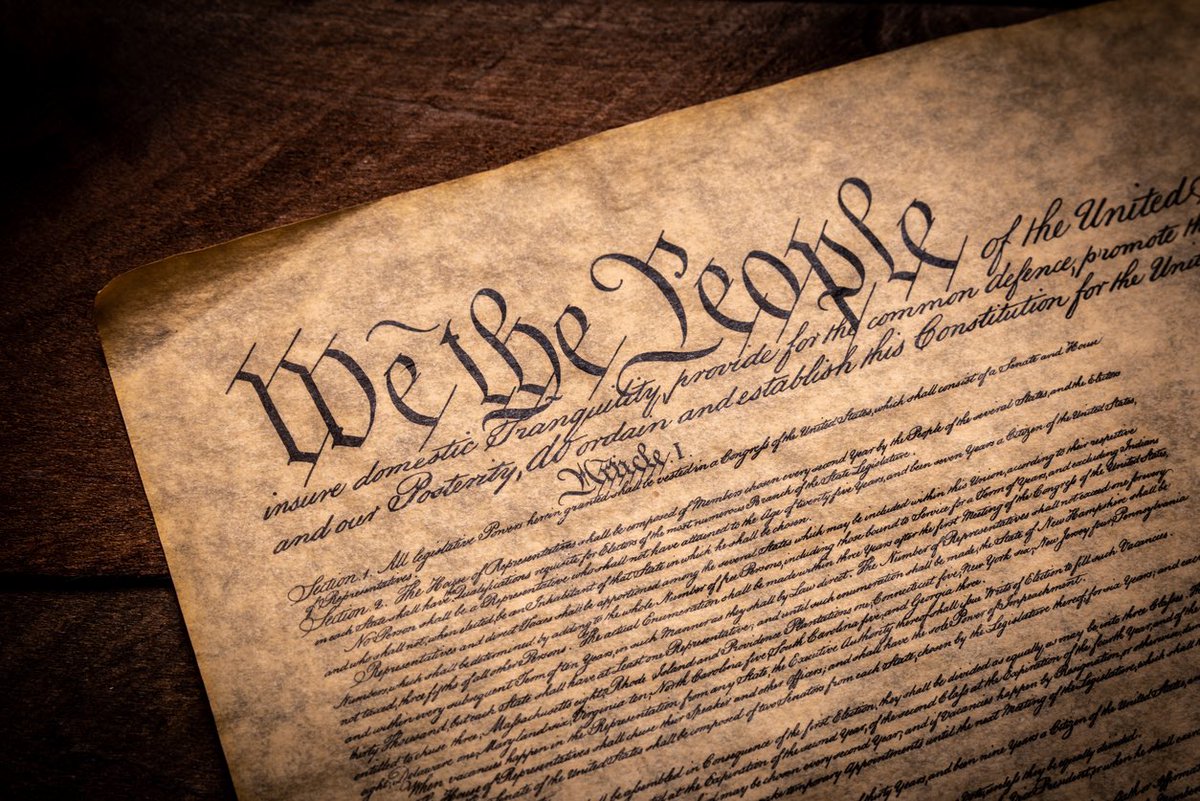 We the People of the United
insure domestic Tranquility, provide for the common defence, promote the
and our Posterity, do ordain and establish this Constitution for the Unit
Article I.
Section 1. All legislative Powers herein granted shall be vested in a Congress of the United States, which shall consist of a Senate and House
of Representatives.
Section 2. The House of Representatives shall be composed of Members chosen every second Year by the People of the several States, and the Electors
in each State shall have Qualifications requisite for Electors of the most numerous Branch of the State Legislature.
No Person shall be a Representative who shall not have attained to the Age of twenty five Years, and been seven Years a Citizen of the United States,
and who shall not, when elected, be an Inhabitant of that State in which he shall be chosen.
Representatives and direct Taxes shall be apportioned among the several States which may be included within this Union, according to their respective
Numbers, which shall be determined by adding to the whole Number of free Persons, including those bound to Service for a Term of Years, and excluding Indians
not taxed, three fifths of all other Persons. The actual Enumeration shall be made within three Years after the first Meeting of the Congress of the United States,
and within every subsequent Term of ten Years, in such Manner as they shall by Law direct. The Number of Representatives shall not exceed one for every
thirty Thousand, but each State shall have at Least one Representative; and until such enumeration shall be made, the State of New Hampshire shall be
entitled to chuse three, Massachusetts eight, Rhode Island and Providence Plantations one, Connecticut five, New York six, New Jersey four, Pennsylvania
eight, Delaware one, Maryland six, Virginia ten, North Carolina five, South Carolina five, and Georgia three.
When vacancies happen in the Representation from any State, the Executive Authority thereof shall issue Writs of Election to fill such Vacancies.
House of Representatives shall chuse their Speaker and other Officers; and shall have the sole Power of Impeachment.
Senate of the United States shall be composed of two Senators from each State, chosen by the Legislature thereof, for six Years; and each
shall be assembled in Consequence of the first Election, they shall be divided as equally as may be into three Classes.
at the Expiration of the second Year, of the second Class at the Expiration of the fourth Year, and
may be chosen every second Year; and if Vacancies happen by Resignation, or otherwise
temporary Appointments until the next Meeting of the Legislature, which shall
thirty Years, and been nine Years a Citizen of the United
unless they be equally divided.